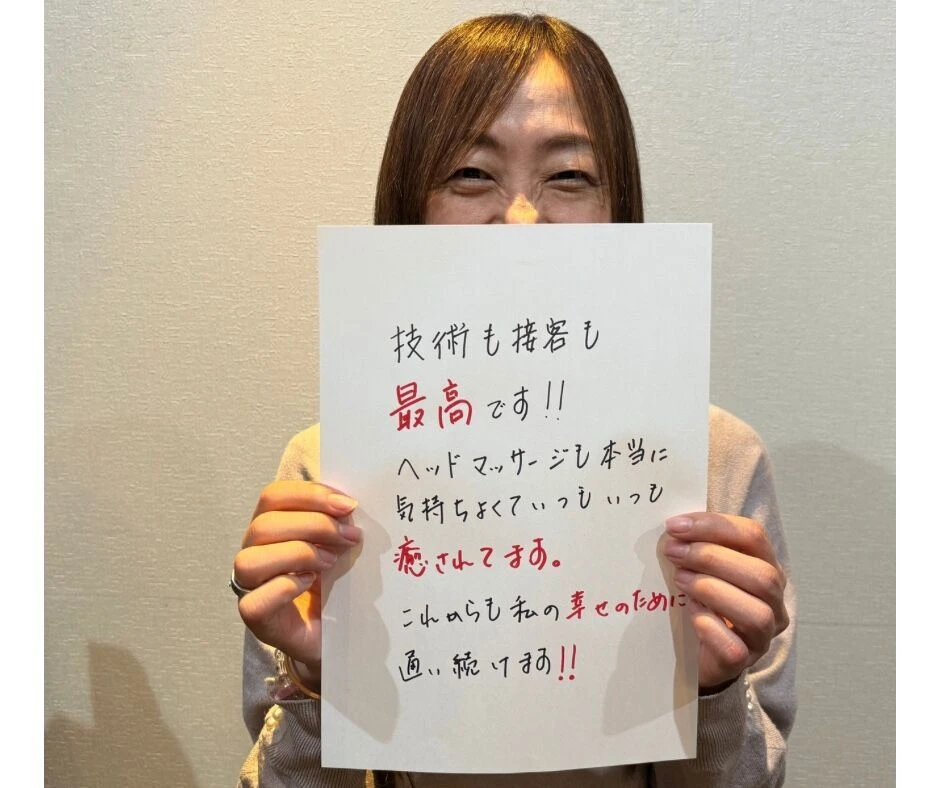 技術も接客も
最高です!!
ヘッドマッサージも本当に
気持ちよくていつもいつも
癒されてます。
これからも私の幸せのために
通い続けます!!